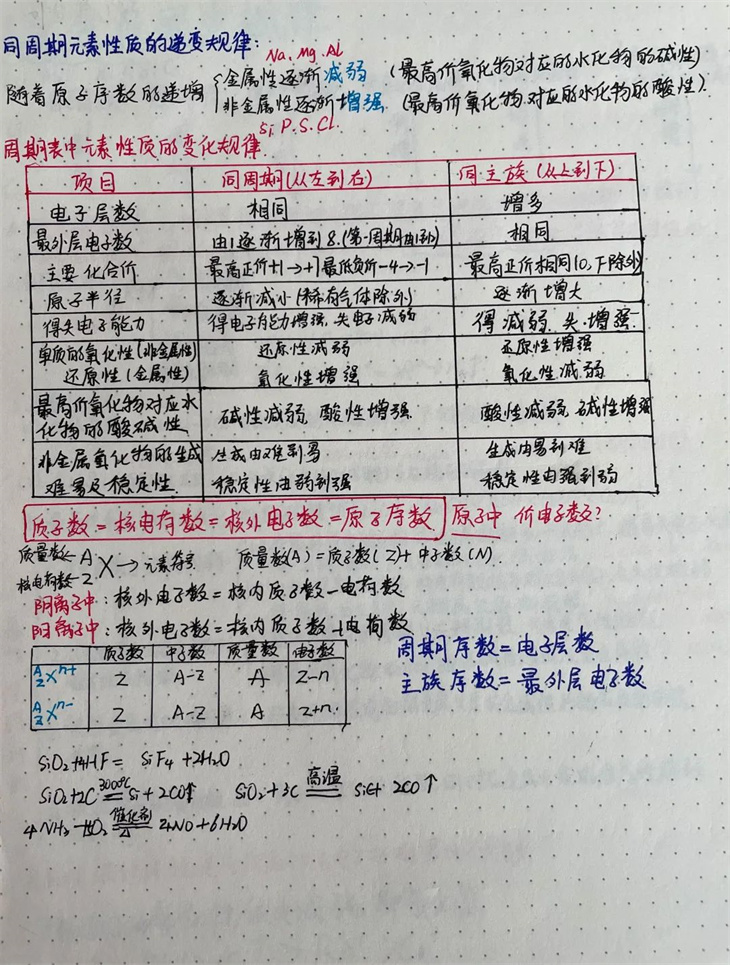 同周期元素性质的递变规律:
Na.Mg.Al
随着原子序数的递增 { 金属性逐渐减弱 (最高价氧化物对应的水化物的碱性)
非金属性逐渐增强 (最高价氧化物对应的水化物的酸性).
Si.P.S.Cl.
周期表中元素性质的变化规律
项目 同周期(从左到右) 同主族(从上到下)
电子层数 相同 增多
最外层电子数 由1逐渐增到8.(第一周期由1到2) 相同
主要化合价 最高正价+1→+7最低负价-4→-1 最高正价相同(O.F除外)
原子半径 逐渐减小(稀有气体除外) 逐渐增大
得失电子能力 得电子能力增强,失电子减弱 得减弱.失.增强.
单质的氧化性(非金属性) 还原性减弱 还原性增强
还原性(金属性) 氧化性增强 氧化性减弱
最高价氧化物对应水 碱性减弱,酸性增强. 酸性减弱,碱性增强
化物的酸碱性
非金属氧化物的生成 生成由难到易 生成由易到难
难易及稳定性. 稳定性由弱到强 稳定性由强到弱
质子数=核电荷数=核外电子数=原子序数 原子中 价电子数?
质量数–A X→元素符号 质量数(A)=质子数(Z)+中子数(N).
核电荷数–Z
阴离子中:核外电子数=核内质子数–电荷数
阳离子中:核外电子数=核内质子数+电荷数
质子数 中子数 质量数 电子数
A Z X n+ Z A-Z A Z-n
A Z X n- Z A-Z A Z+n.
周期序数=电子层数
主族序数=最外层电子数
SiO₂+4HF= SiF₄+2H₂O
SiO₂+2C 3000℃ Si+2CO↑ SiO₂+3C 高温 SiC+2CO↑
4NH₃+5O₂ 催化剂 △ 4NO+6H₂O